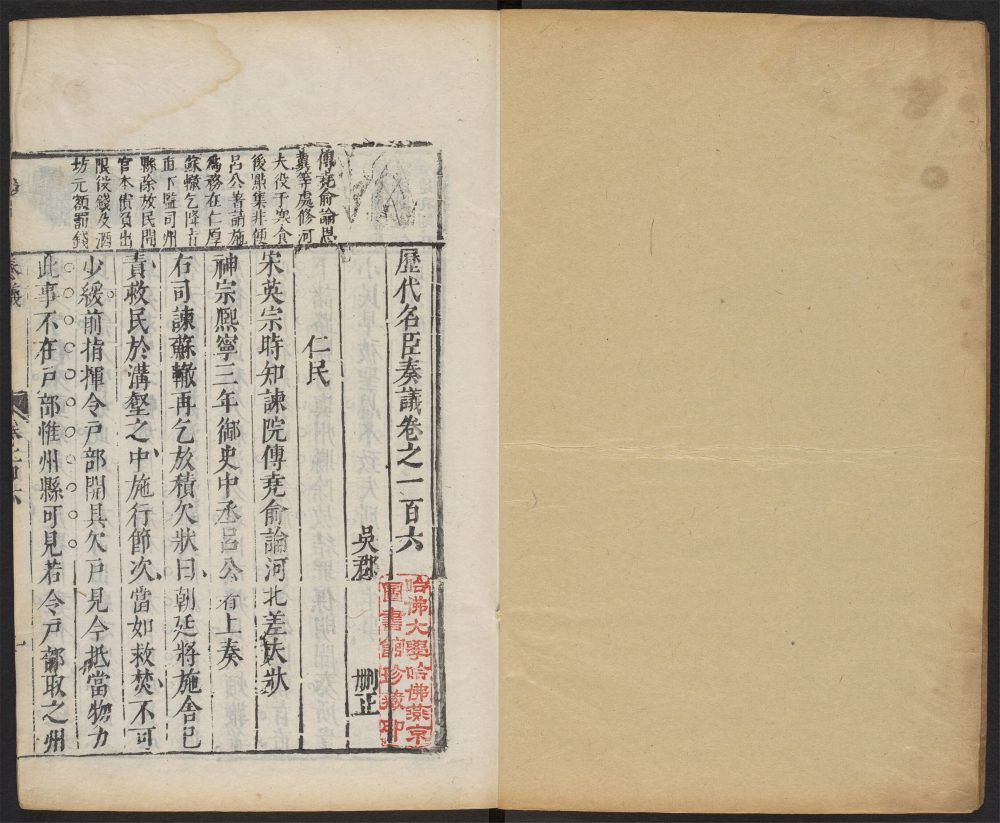 歷代名臣奏議卷之一百六
吳郡 刪正
仁民
宋英宗時知諫院傅堯俞論河北差夫狀
神宗熙寧三年御史中丞呂公著上奏
右司諫蘇轍再乞放積欠狀曰朝廷將施舍已
責救民於溝壑之中施行節次當如救焚不可
少緩前指揮令戶部開具欠戶見今抵當物力
此事不在戶部惟州縣可見若令戶部取之州
傅堯俞論恩
冀等處修河
夫役于寒食
後鼎集非便
呂公著請施
為務在仁厚
蘇轍乞降旨
直下監司州
縣除放民間
官本債負出
限役錢及酒
坊元額罰錢
奏議
一
哈佛大學哈佛燕京
圖書館珍藏印